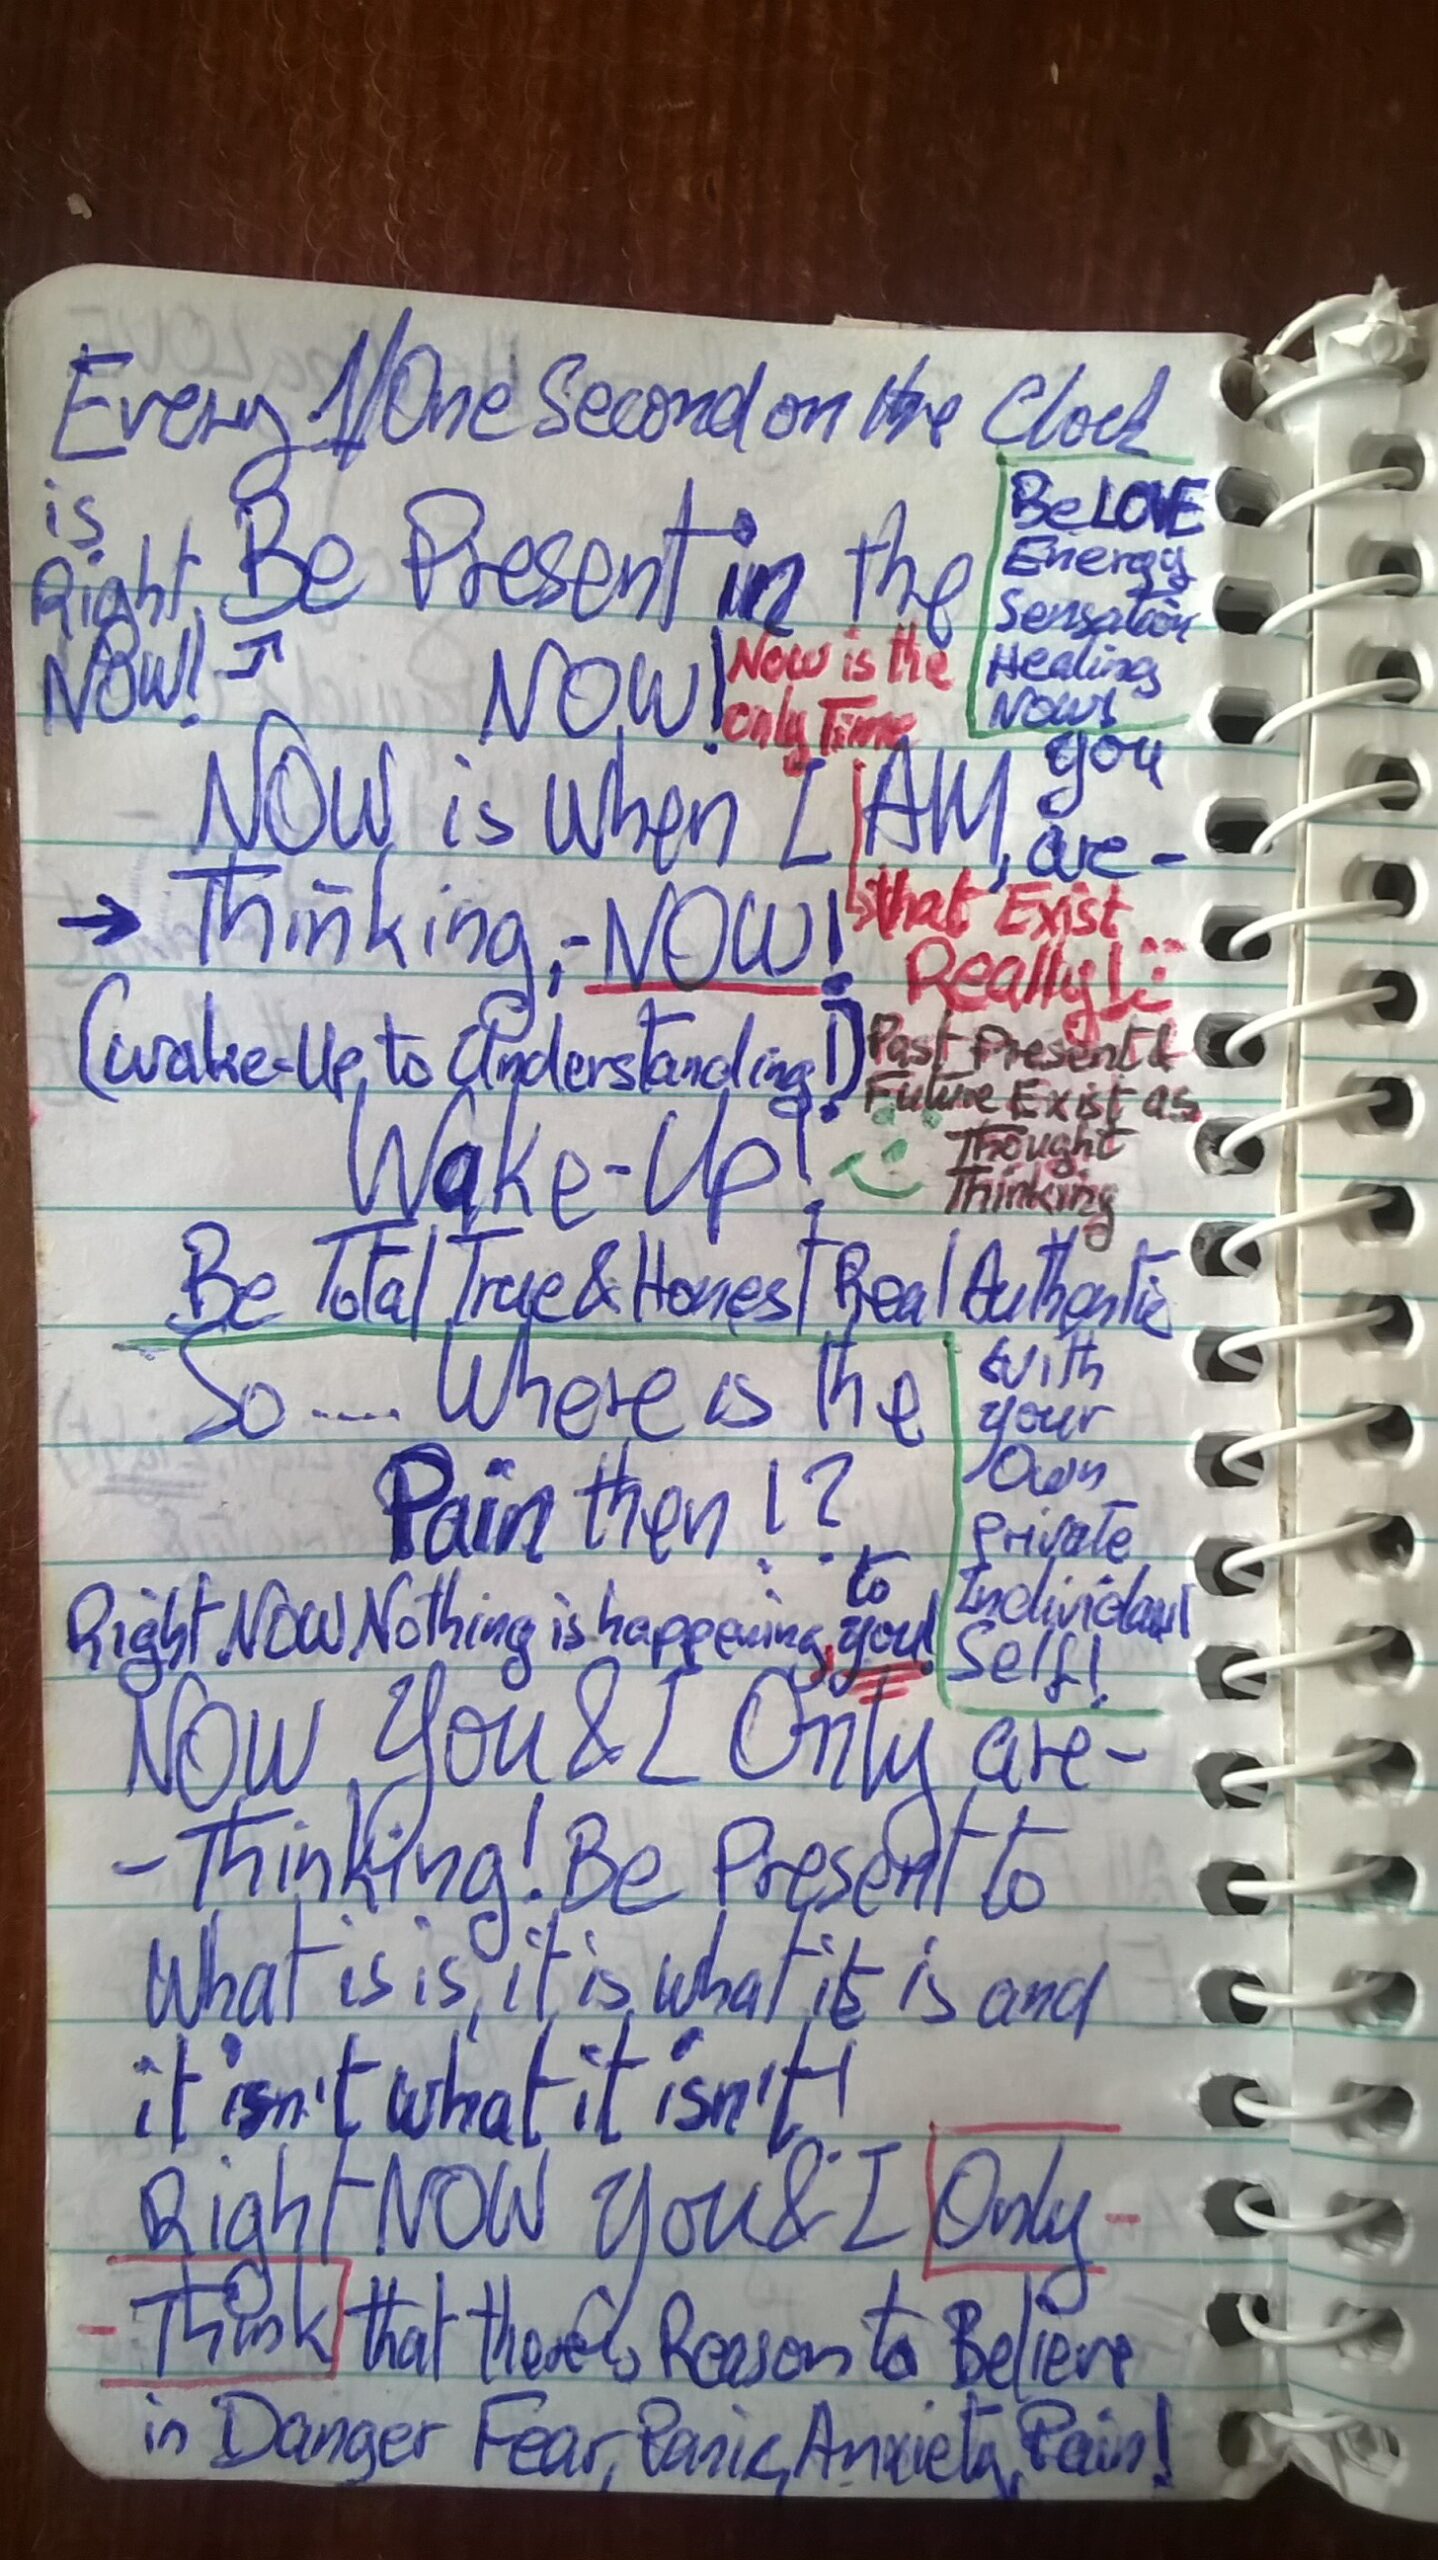 Every 1/One Second on the Clock
is
Right
NOW!
Be Present in the
NOW!
Be LOVE
Energy
Sensation
Healing
NOW!
Now is the
only Time
that Exist
Really!
NOW is when I AM, you
are-
Thinking,-NOW!
(Wake-Up to Understanding!)
Past Present &
Future Exist as
Thought
Thinking
Wake-Up!
Be Total True & Honest Real Authentic
with
your
Own
Private
Individual
Self!
So .... Where is the
Pain then!?
Right NOW Nothing is happening to
you!
NOW You & I Only are-
-Thinking! Be Present to
What is is, it is what it is and
it isn't what it isn't!
Right NOW You & I Only-
-Think that there's Reason to Believe
in Danger Fear, Panic, Anxiety, Pain!